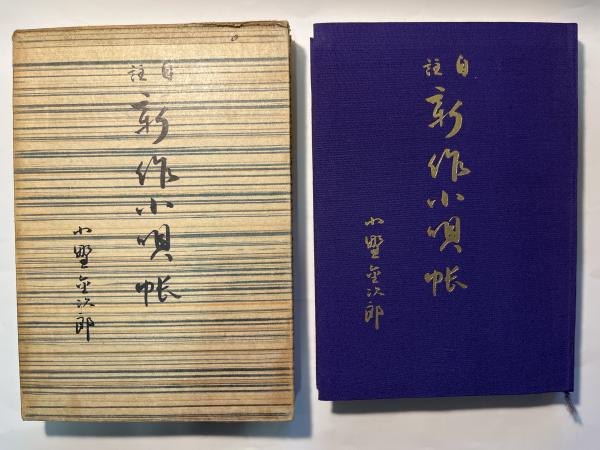 自註
新作小唄帳
小野金次郎
自註
新作小唄帳
小野金次郎